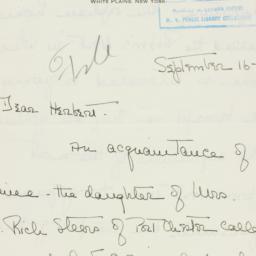 WHITE PLAINS, NEW YORK
File
September 16-
Dear Herbert.
An acquaintance of
mine - the daughter of Mrs.
Rich Steers of Port Chester called